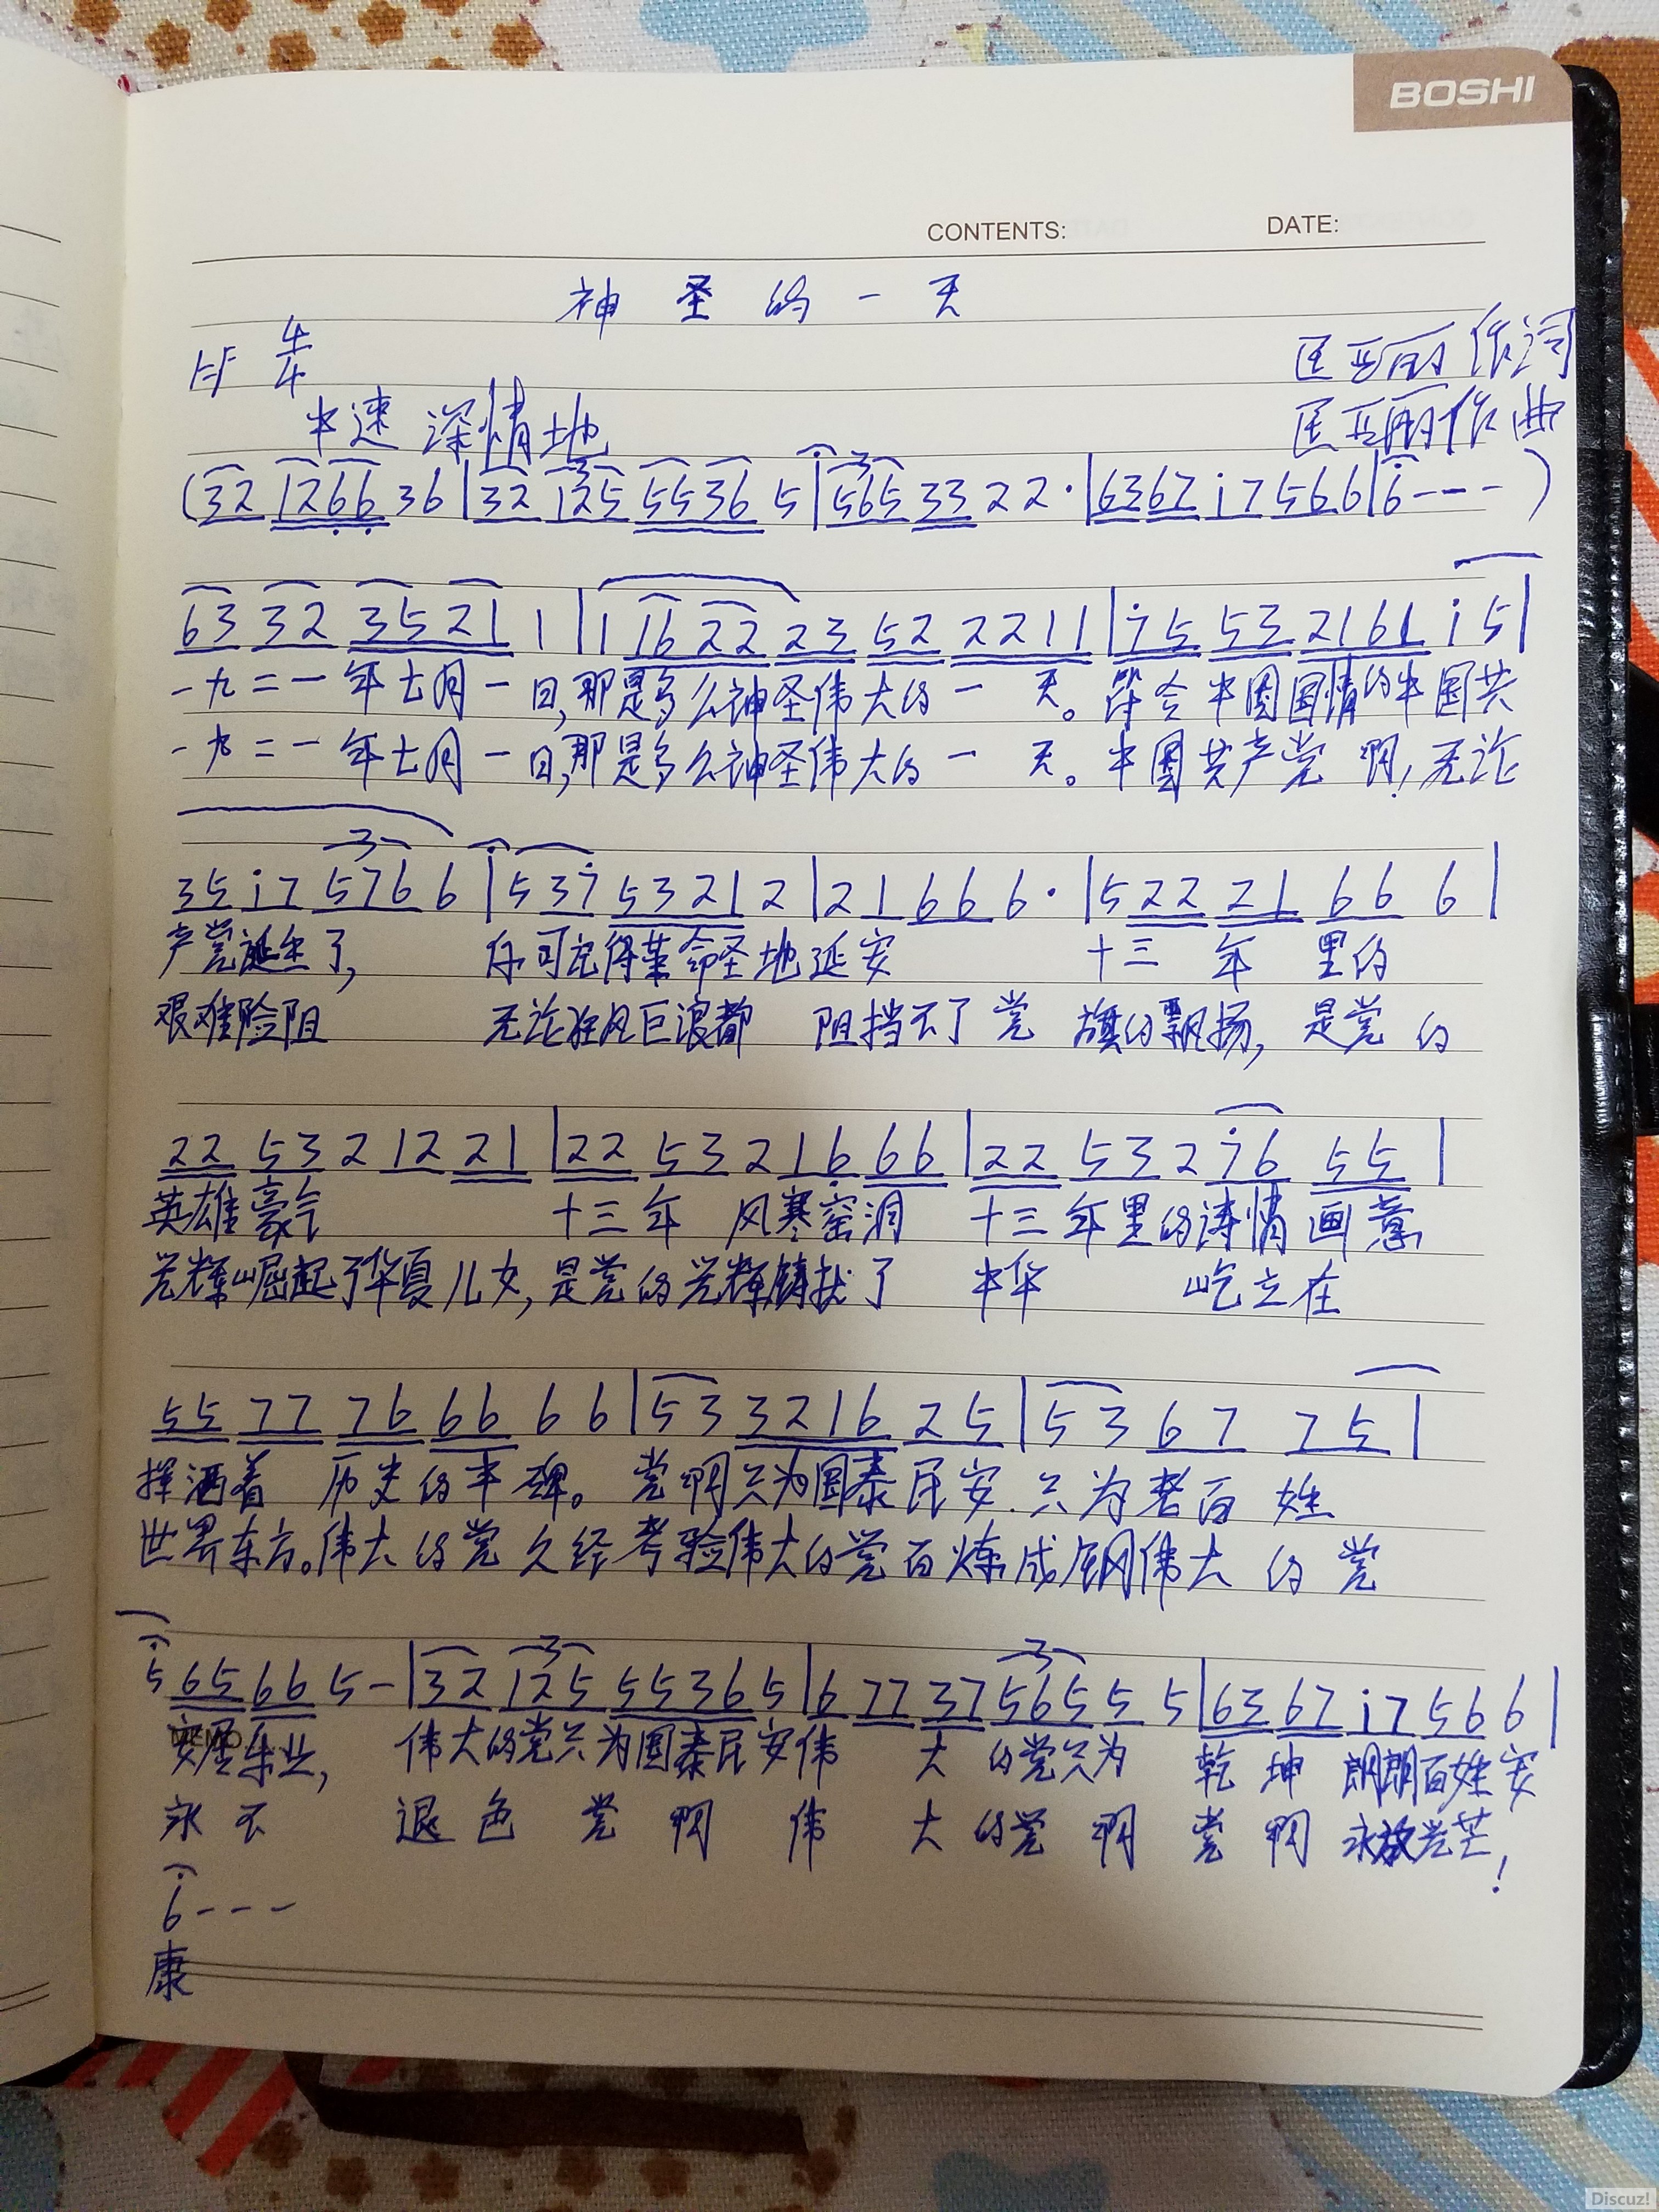 BOSHI
CONTENTS: DATE:
神圣的一天
4/4
匡亚丽作词
中速 深情地
匡亚丽作曲
(32 1266 36|32 125 5536 5|565 33 22·|6367 i7 566|6---)
63 32 3521 1|1 16 22 23 52 2211|i5 53 2161 i5|
一九二一年七月一日,那是多么神圣伟大的一天。符合中国国情的中国共
一九二一年七月一日,那是多么神圣伟大的一天。中国共产党啊,无论
35 i7 576 6|5 37 5321 2|21 66 6·|5 22 21 66 6|
产党诞生了, 你可记得革命圣地延安 十三年里的
艰难险阻 无论狂风巨浪都 阻挡不了党 旗的飘扬, 是党的
22 53 2 12 21|22 53 2 16 66|22 53 2 i6 55|
英雄豪气 十三年 风寒窑洞 十三年里的诗情画意
光辉崛起了华夏儿女,是党的光辉铸就了 中华 屹立在
55 77 76 66 6 6|53 3216 25|53 67 75|
挥洒着 历史的丰碑。党啊只为国泰民安.只为老百姓
世界东方。伟大的党久经考验伟大的党百炼成钢伟大的党
5 65 66 5-|32 125 55365|6 77 37 565 5 5|63 67 i7 56 6|
安居乐业, 伟大的党只为国泰民安伟 大 的党只为 乾坤朗朗百姓安
永不 退色党啊 伟大的党啊 党啊永放光芒!
6---
康
Discuz!